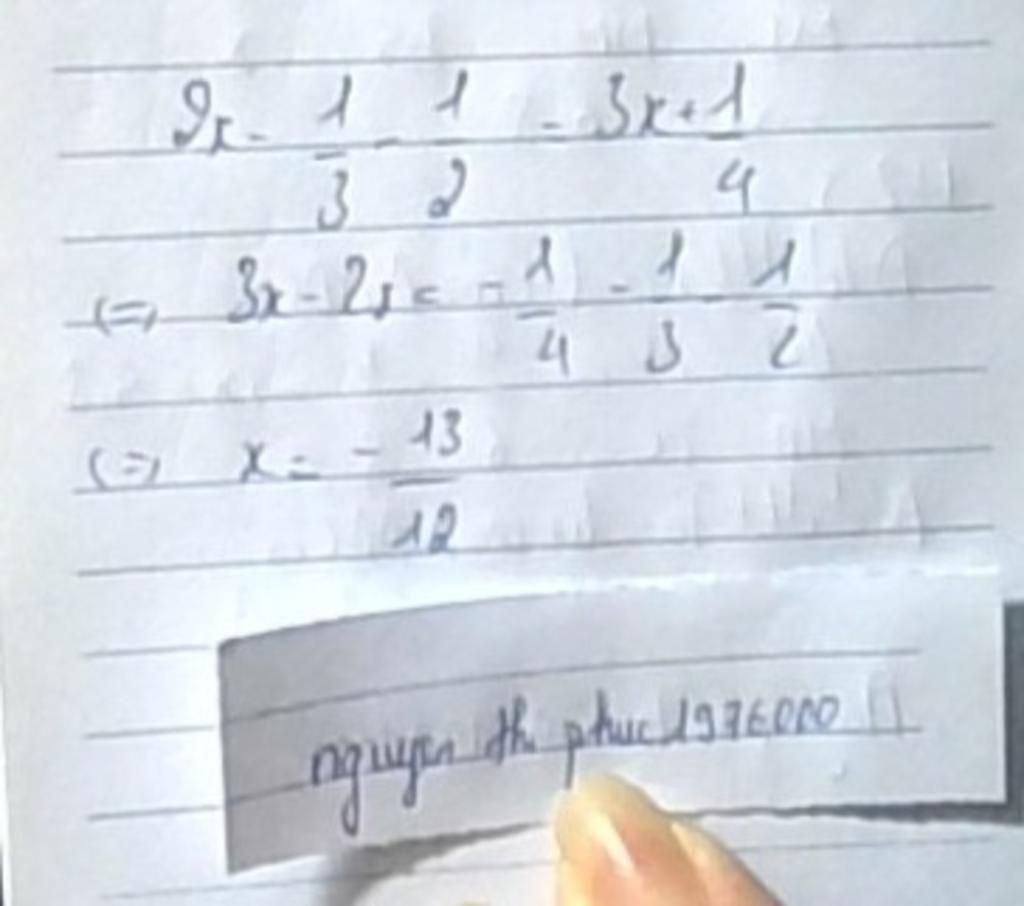 2x - 1/3 - 1/2 = 3x + 1/4
(=) 3x - 2x = - 1/4 - 1/3 - 1/2
(=) x = - 13/12
nguyen thi phuc 1976000